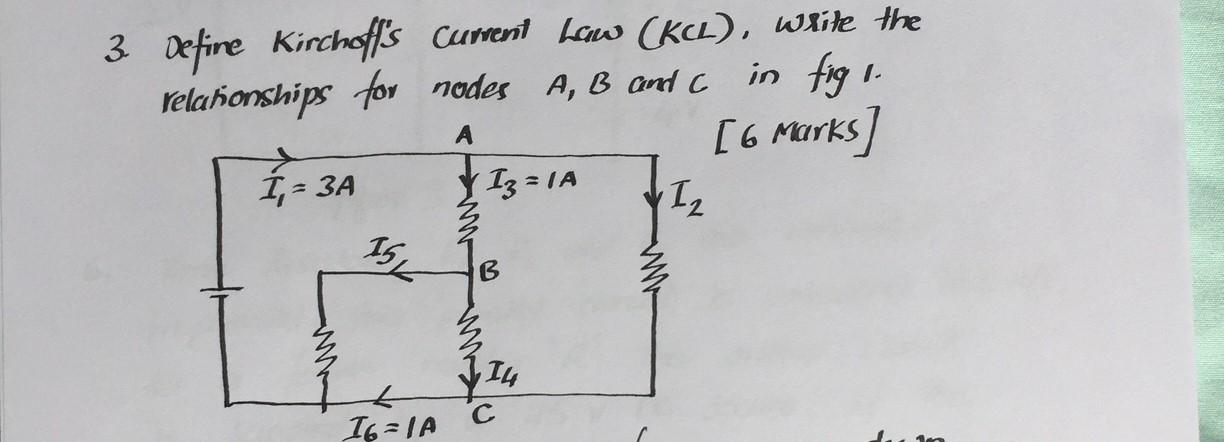 3. Define Kirchoff's Current Law (KCL), write the
relationships for nodes A, B and C in fig 1.
[6 Marks]
A
I₁ = 3A
I₃ = 1A
I₂
I₅
B
I₄
I₆ = 1A
C